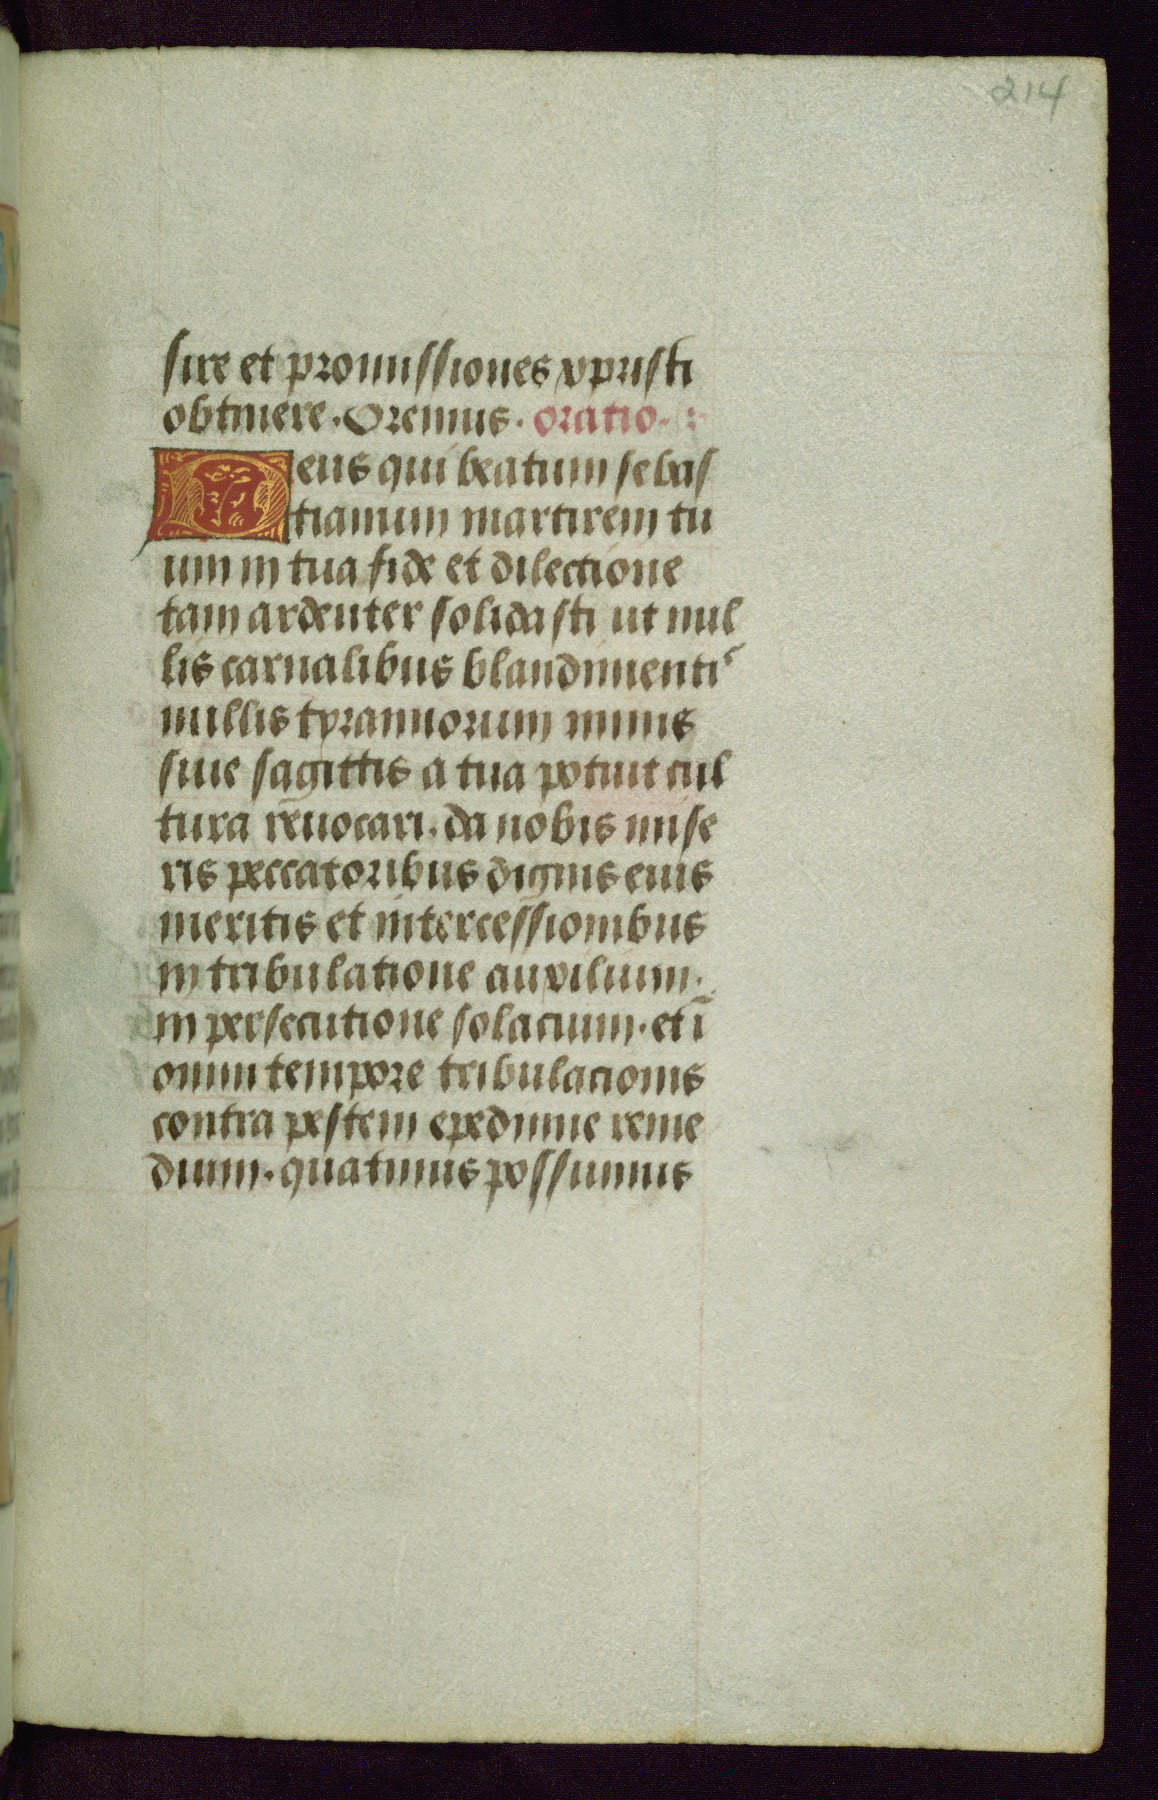 214
sire et promissiones xpristi
obtinere. Oremus. oratio.
Deus qui beatum sebas
tianum martirem tu
um in tua fide et dilectione
tam ardenter solidasti ut nul
lis carnalibus blandimenti͛
nullis tyrannorum minis
siue sagittis a tua potuit cul
tura reuocari. da nobis mise
ris peccatoribus dignis eius
meritis et intercessionibus
in tribulatione auxilium.
in persecutione solacium. et ī
omni tempore tribulacionis
contra pestem epedimie reme
dium. quatinus possumus